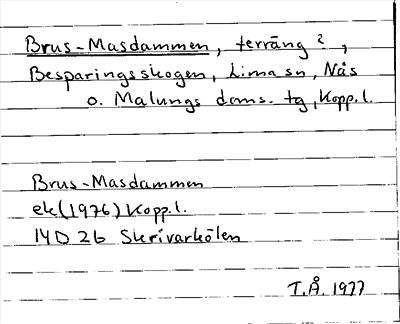 Brus-Masdammen, terräng?,
Besparingsskogen, Lima sn, Nås
o. Malungs doms. tg, Kopp.l.
Brus-Masdammen
ek (1976) Kopp.l.
14D 2b Skrivarkölen
T.Å. 1977